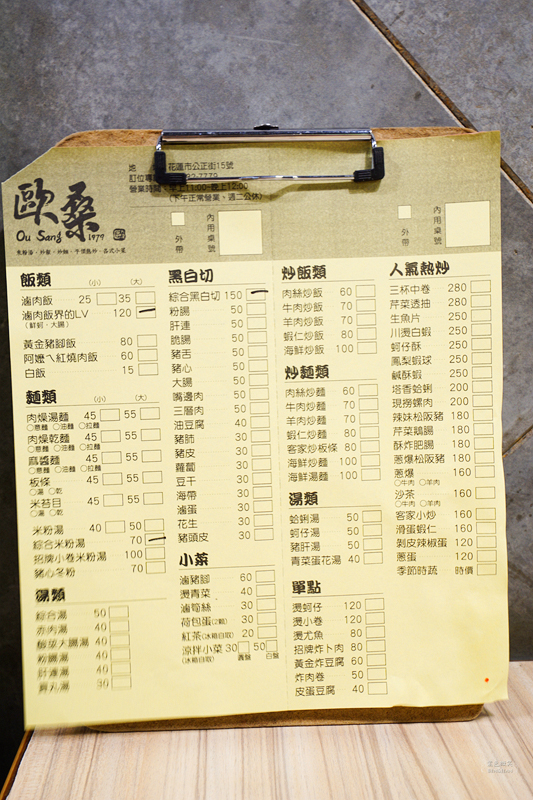 地　花蓮市公正街15號
訂位專
7779
營業時間：早上11:00-晚上12:00
(下午正常營業、週二公休)
歐桑
Ou Sang 1979
外帶
內用桌號
外帶
內用桌號
飯類 (小) (大)
滷肉飯 25 35
滷肉飯界的LV 120
(鮮蚵、大腸)
黃金豬腳飯 80
阿嬤ㄟ紅燒肉飯 60
白飯 15
麵類 (小) (大)
肉燥湯麵 45 55
○意麵 ○油麵 ○拉麵
肉燥乾麵 45 55
○意麵 ○油麵 ○拉麵
麻醬麵 45 55
○意麵 ○油麵 ○拉麵
板條 45 55
○湯 ○乾
米苔目 45 55
○湯 ○乾
米粉湯 40 50
綜合米粉湯 70
招牌小卷米粉湯 100
豬心冬粉 70
湯類
綜合湯 50
赤肉湯 40
酸菜大腸湯 40
粉腸湯 40
肝連湯 40
貢丸湯 30
黑白切
綜合黑白切 150
粉腸 50
肝連 50
脆腸 50
豬舌 50
豬心 50
大腸 50
嘴邊肉 50
三層肉 50
油豆腐 40
豬肺 30
豬皮 30
蘿蔔 30
豆干 30
海帶 30
滷蛋 30
花生 30
豬頭皮 30
小菜
滷豬腳 60
燙青菜 40
滷筍絲 30
荷包蛋(2顆) 30
紅茶(冰箱自取) 20
涼拌小菜 30 50
(冰箱自取) 圓盤 白盤
炒飯類
肉絲炒飯 60
牛肉炒飯 70
羊肉炒飯 70
蝦仁炒飯 80
海鮮炒飯 100
炒麵類
肉絲炒麵 60
牛肉炒麵 70
羊肉炒麵 70
蝦仁炒麵 80
客家炒板條 80
海鮮炒麵 100
海鮮湯麵 100
湯類
蛤蜊湯 50
蚵仔湯 50
豬肝湯 50
青菜蛋花湯 40
單點
燙蚵仔 120
燙小卷 120
燙尤魚 80
招牌炸卜肉 80
黃金炸豆腐 60
炸肉卷 50
皮蛋豆腐 40
人氣熱炒
三杯中卷 280
芹菜透抽 280
生魚片 250
川燙白蝦 250
蚵仔酥 250
鳳梨蝦球 250
鹹酥蝦 250
塔香蛤蜊 200
現撈螺肉 200
辣妹松阪豬 180
芹菜鵝腸 180
酥炸肥腸 180
蔥爆松阪豬 180
蔥爆 160
○牛肉 ○羊肉
沙茶 160
○牛肉 ○羊肉
客家小炒 160
滑蛋蝦仁 160
剝皮辣椒蛋 120
蔥蛋 120
季節時蔬 時價